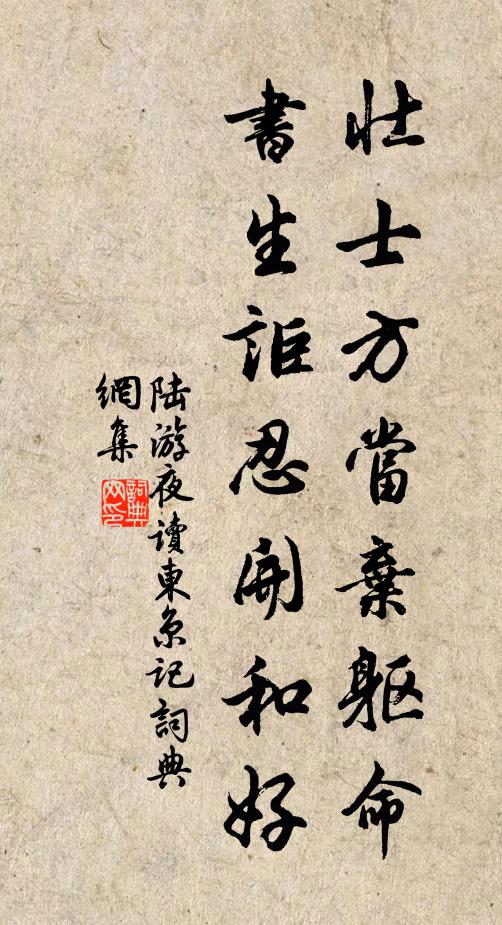 壯士方當棄軀命
書生詎忍開和好
陸游夜讀東京記詞典
網集
詞典网印